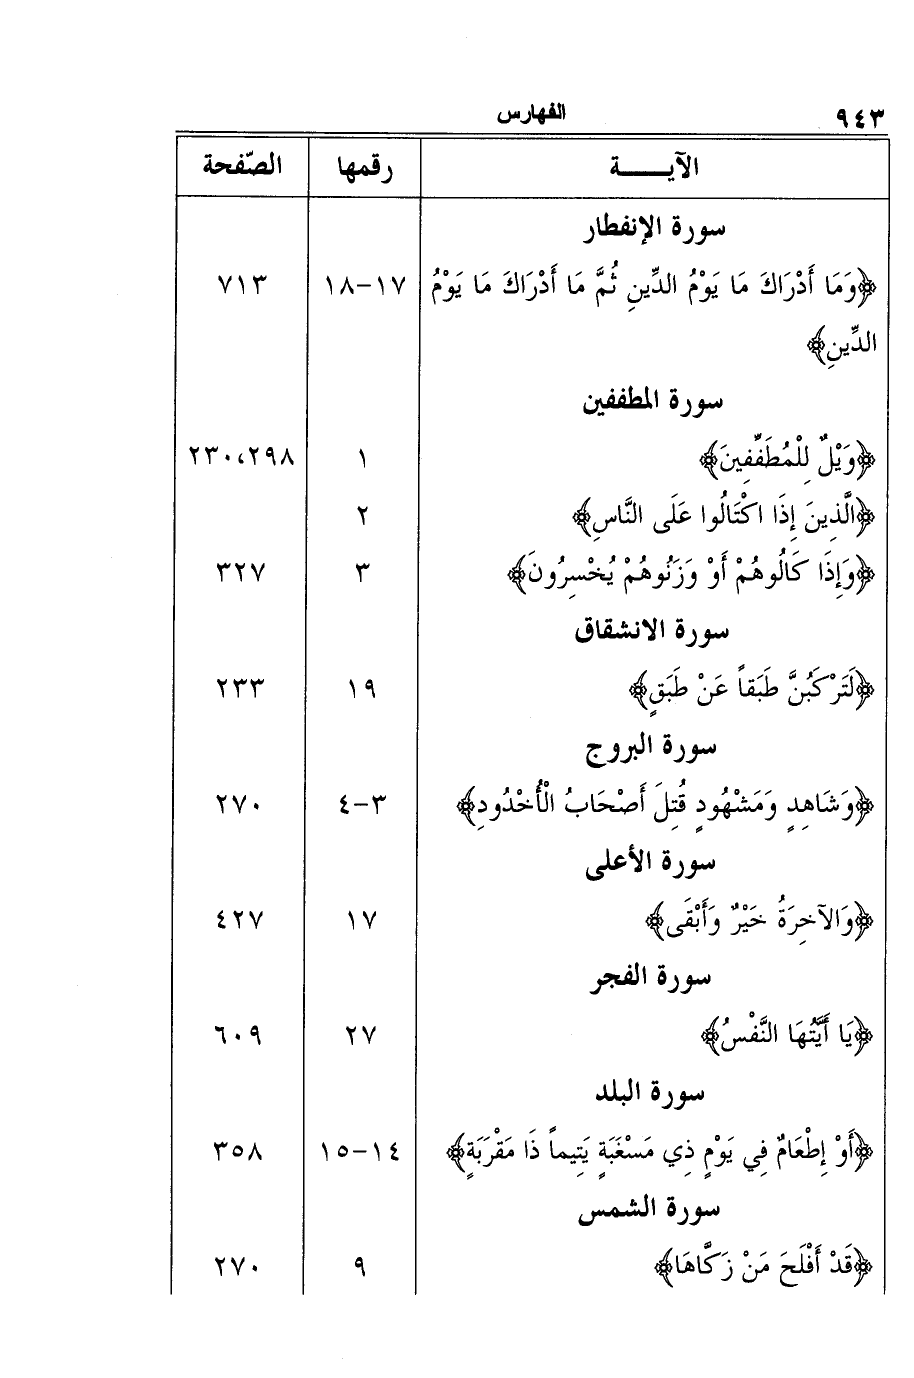 الفهارس ٩٤٣
الآيـــــة رقمها الصّفحة
سورة الإنفطار
﴿وَمَا أَدْرَاكَ مَا يَوْمُ الدِّينِ ثُمَّ مَا أَدْرَاكَ مَا يَوْمُ ١٧-١٨ ٧١٣
الدِّينِ﴾
سورة المطففين
﴿وَيْلٌ لِلْمُطَفِّفِينَ﴾ ١ ٢٣٠،٢٩٨
﴿الَّذِينَ إِذَا اكْتَالُوا عَلَى النَّاسِ﴾ ٢
﴿وَإِذَا كَالُوهُمْ أَوْ وَزَنُوهُمْ يُخْسِرُونَ﴾ ٣ ٣٢٧
سورة الانشقاق
﴿لَتَرْكَبُنَّ طَبَقاً عَنْ طَبَقٍ﴾ ١٩ ٢٣٣
سورة البروج
﴿وَشَاهِدٍ وَمَشْهُودٍ قُتِلَ أَصْحَابُ الْأُخْدُودِ﴾ ٣-٤ ٢٧٠
سورة الأعلى
﴿وَالآخِرَةُ خَيْرٌ وَأَبْقَى﴾ ١٧ ٤٢٧
سورة الفجر
﴿يَا أَيَّتُهَا النَّفْسُ﴾ ٢٧ ٦٠٩
سورة البلد
﴿أَوْ إِطْعَامٌ فِي يَوْمٍ ذِي مَسْغَبَةٍ يَتِيماً ذَا مَقْرَبَةٍ﴾ ١٤-١٥ ٣٥٨
سورة الشمس
﴿قَدْ أَفْلَحَ مَنْ زَكَّاهَا﴾ ٩ ٢٧٠